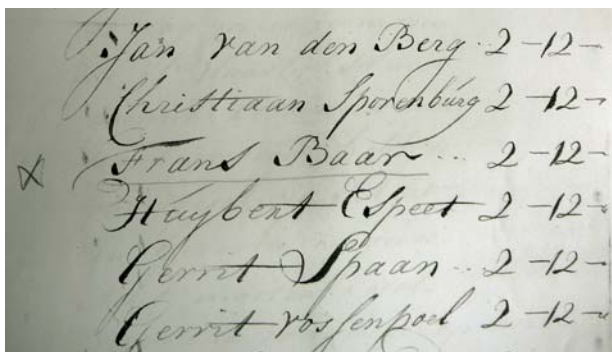 Jan van den Berg. 2-12-
Christiaan Sporenburg 2-12-
X Frans Baar... 2-12-
Huÿbert Espeet 2-12-
Gerrit Spaan.. 2-12-
Gerrit Vossenpoel 2-12-